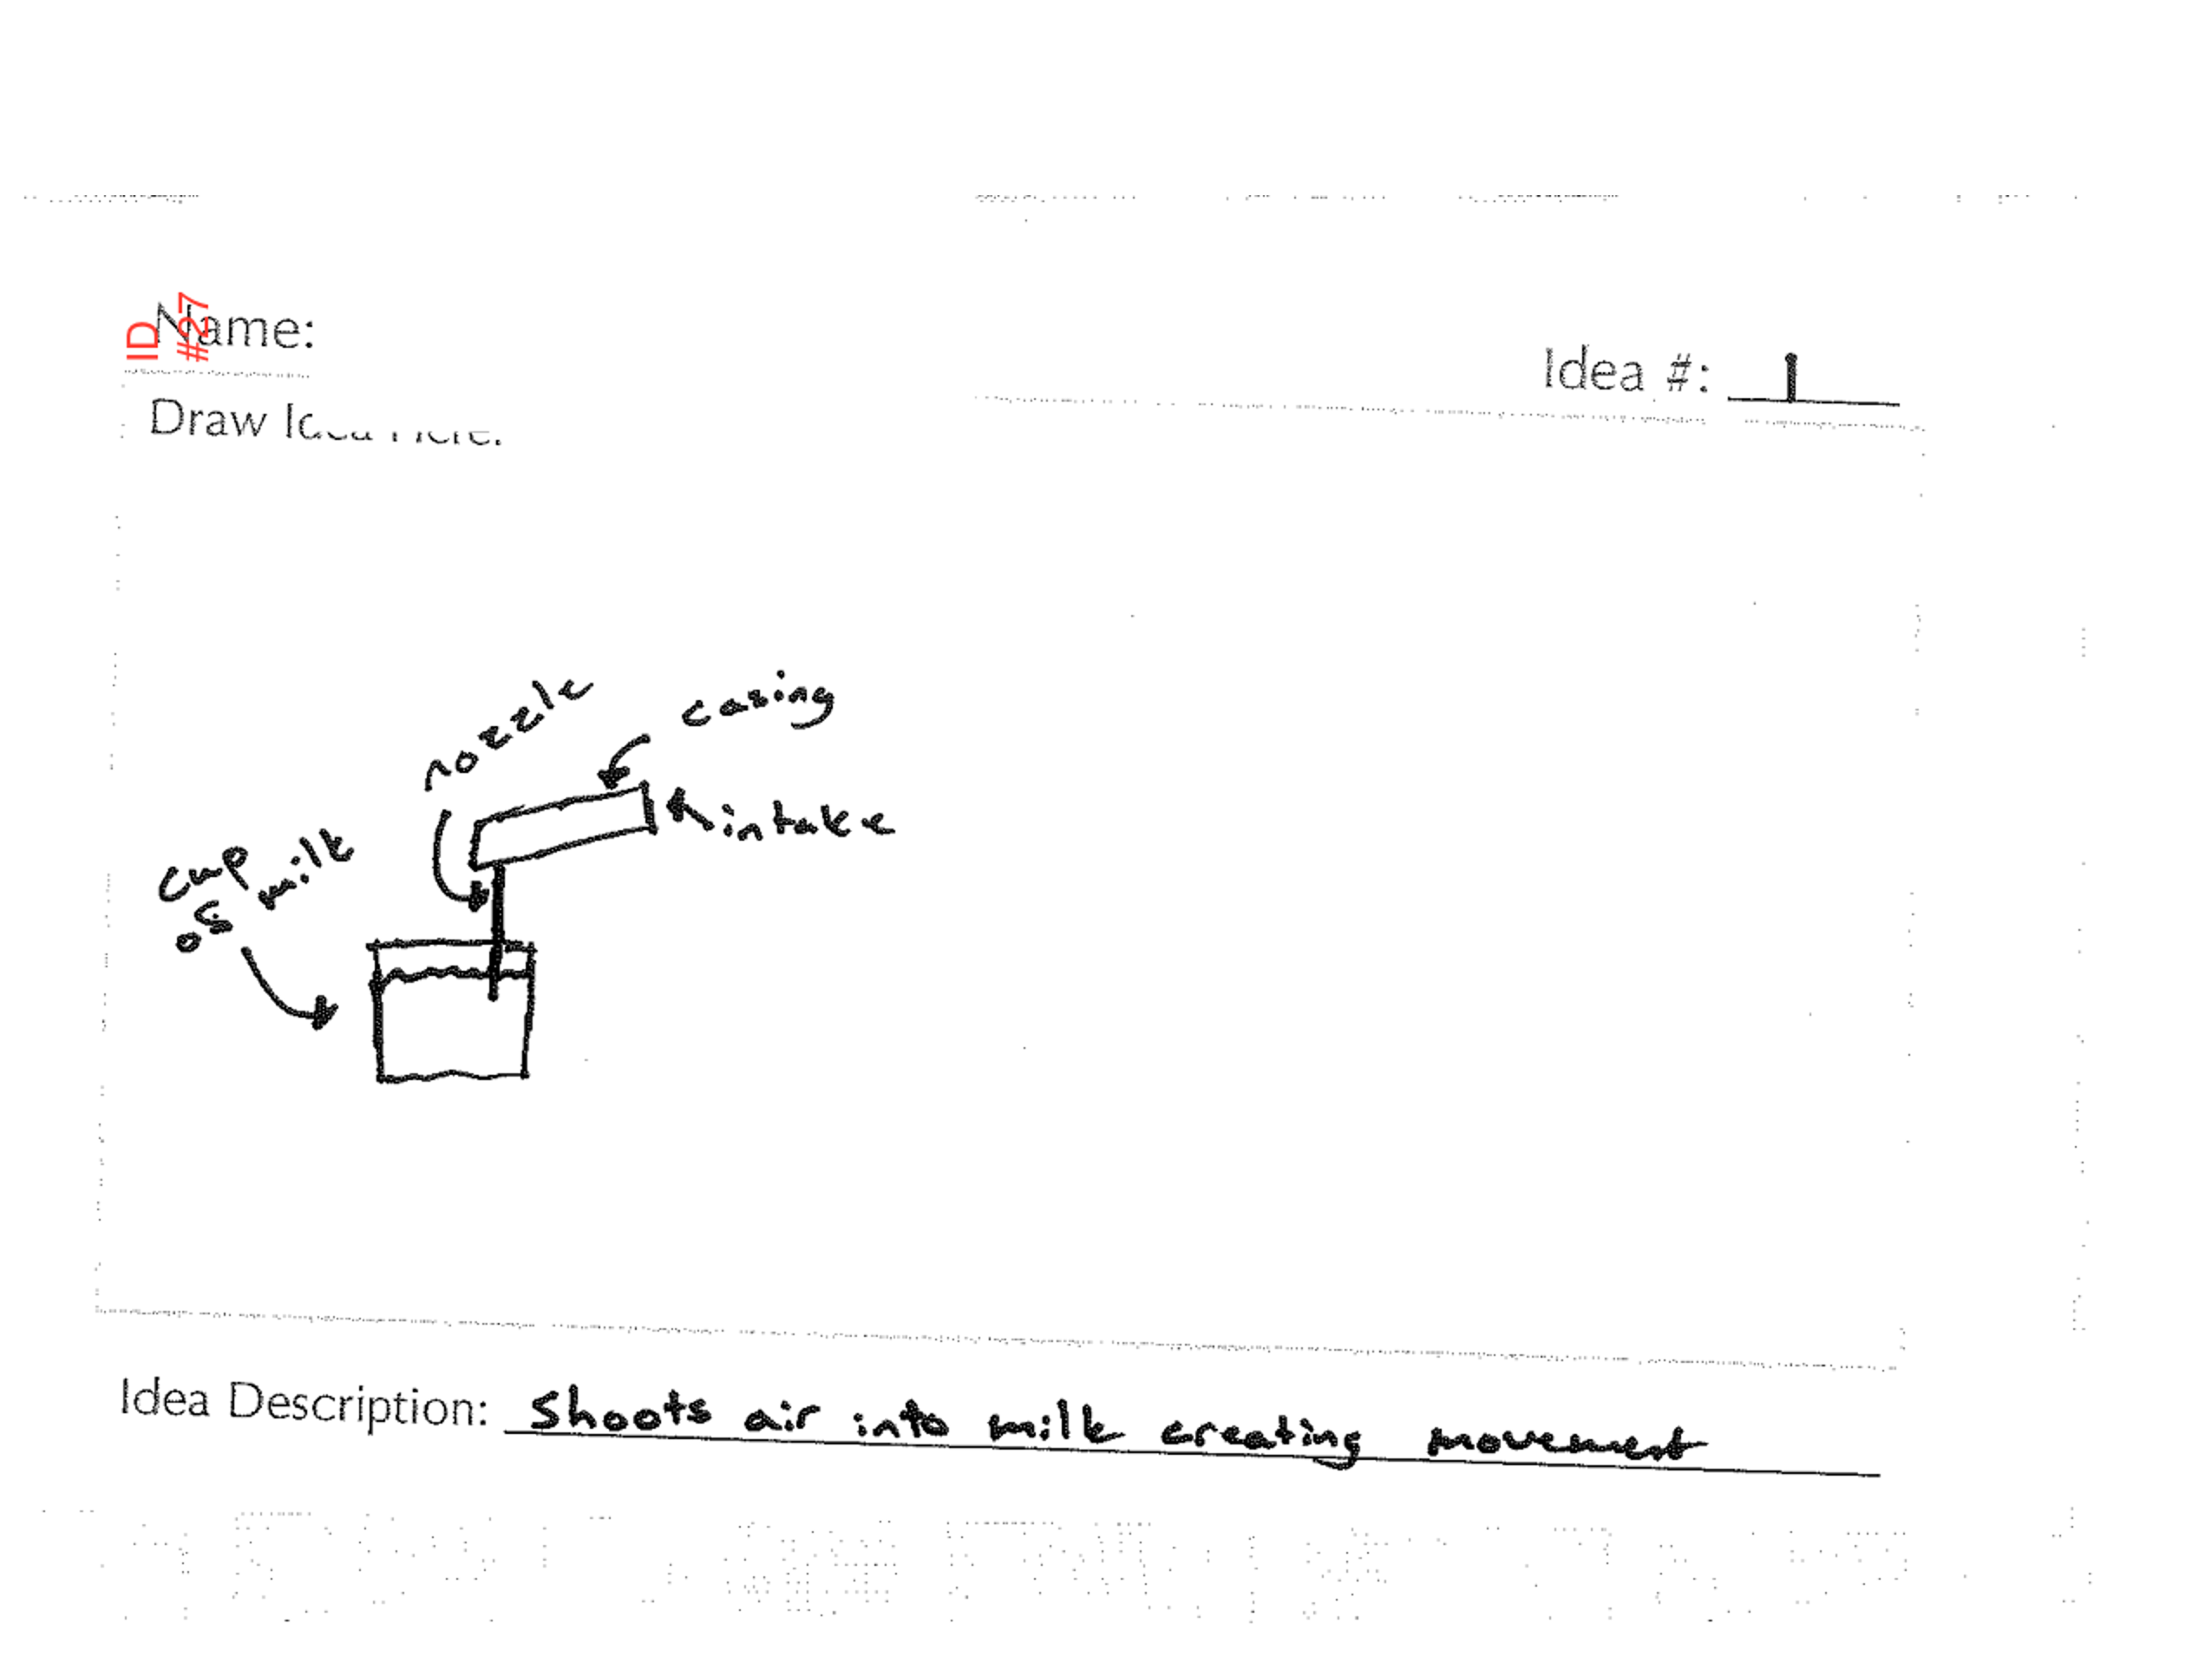 ID
#27
Name:
Idea #: 1
Draw Idea Here:
nozzle
casing
intake
cup
of milk
Idea Description: Shoots air into milk creating movement